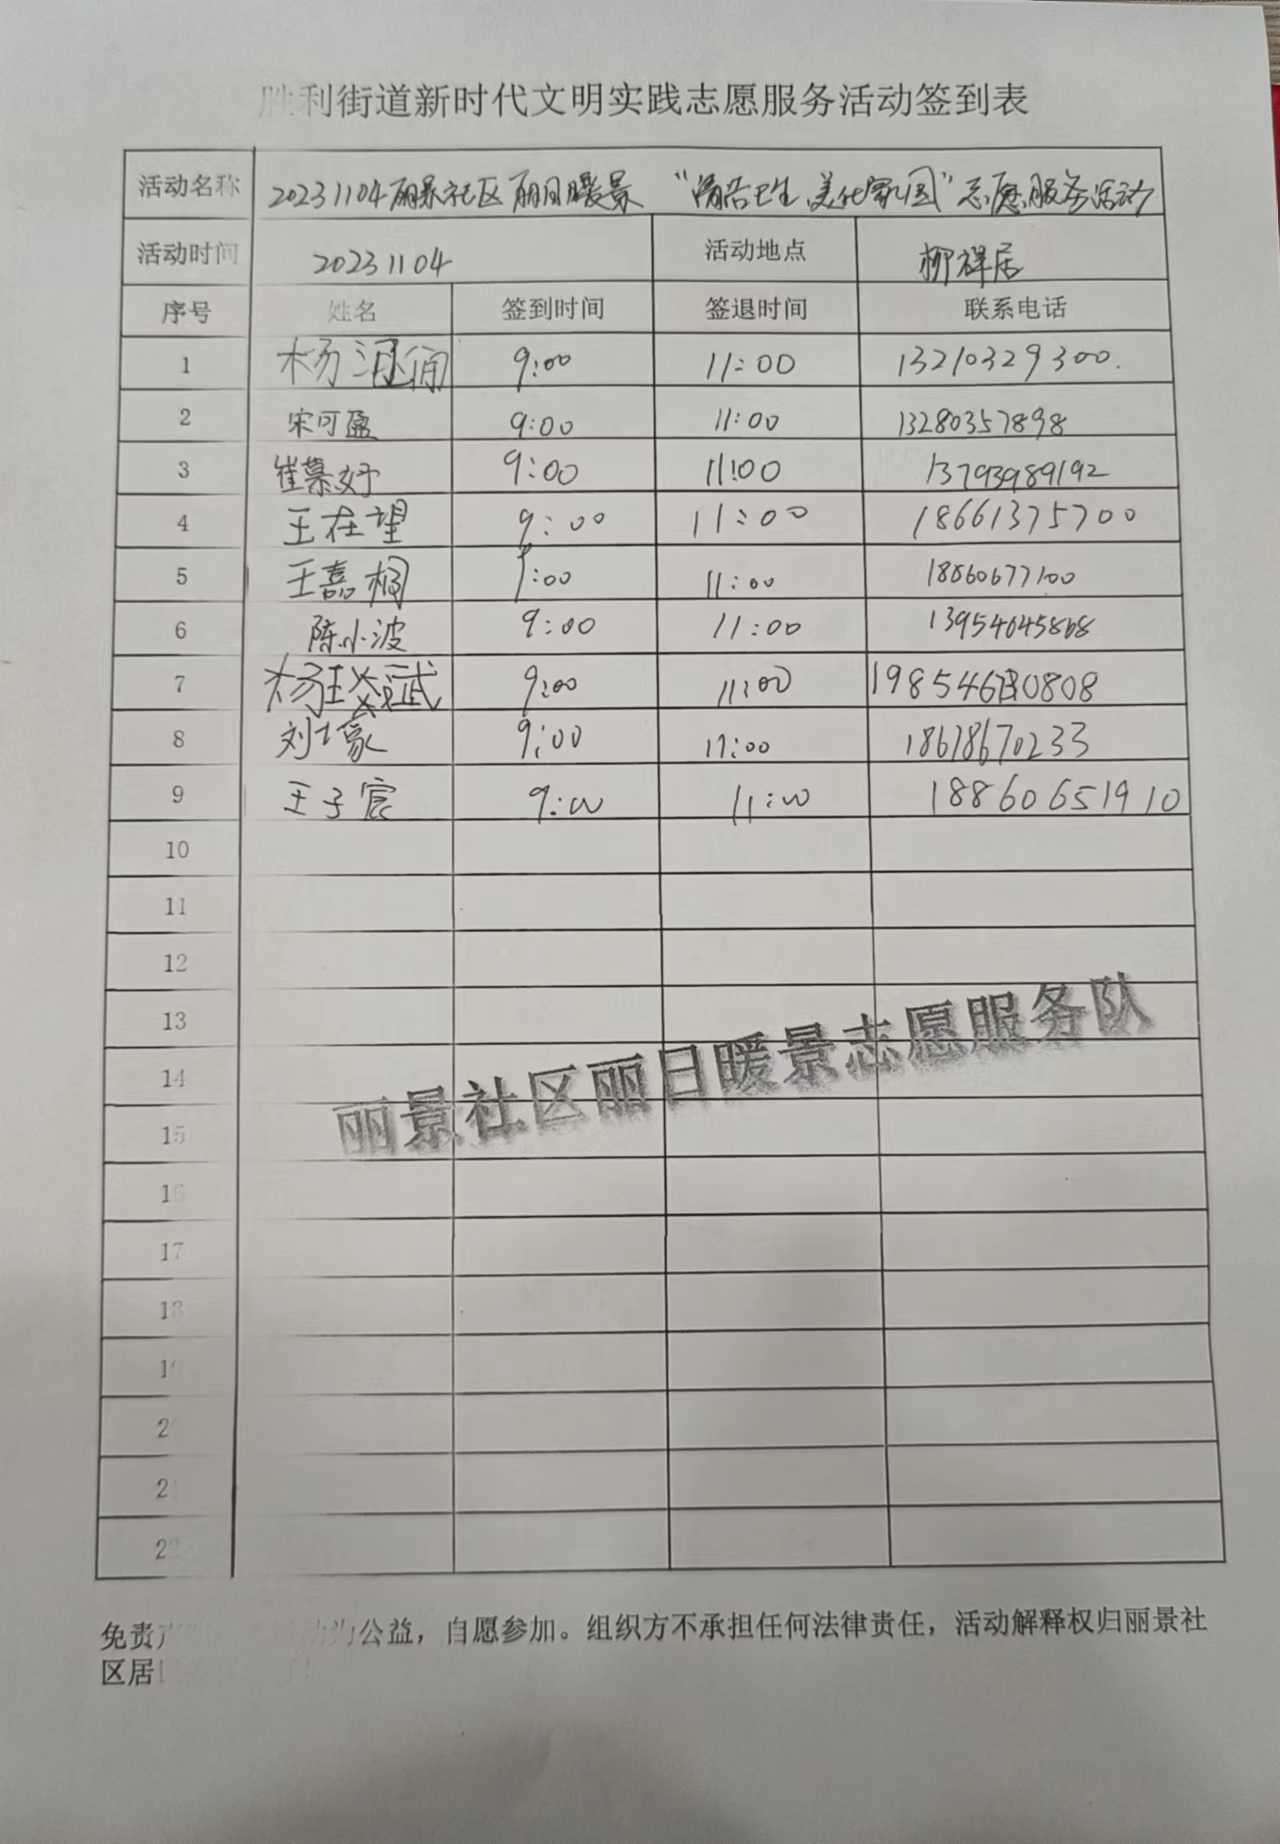 胜利街道新时代文明实践志愿服务活动签到表
活动名称 20231104丽景社区丽日暖景“清洁卫生 美化家园”志愿服务活动
活动时间 20231104 活动地点 柳祥居
序号 姓名 签到时间 签退时间 联系电话
1 杨 9:00 11:00 13210329300.
2 宋可盈 9:00 11:00 13280357898
3 崔慕妤 9:00 11:00 13793989192
4 王在望 9:00 11:00 18661375700
5 王嘉桐 9:00 11:00 18860677100
6 陈小波 9:00 11:00 13954645868
7 杨 9:00 11:00
8 刘士豪 9:00 11:00 18678670233
9 王子宸 9:00 11:00 18860651910
10
11
12
13
14
15
16
17
18
丽景社区丽日暖景志愿服务队
免责 公益，自愿参加。组织方不承担任何法律责任，活动解释权归丽景社
区居